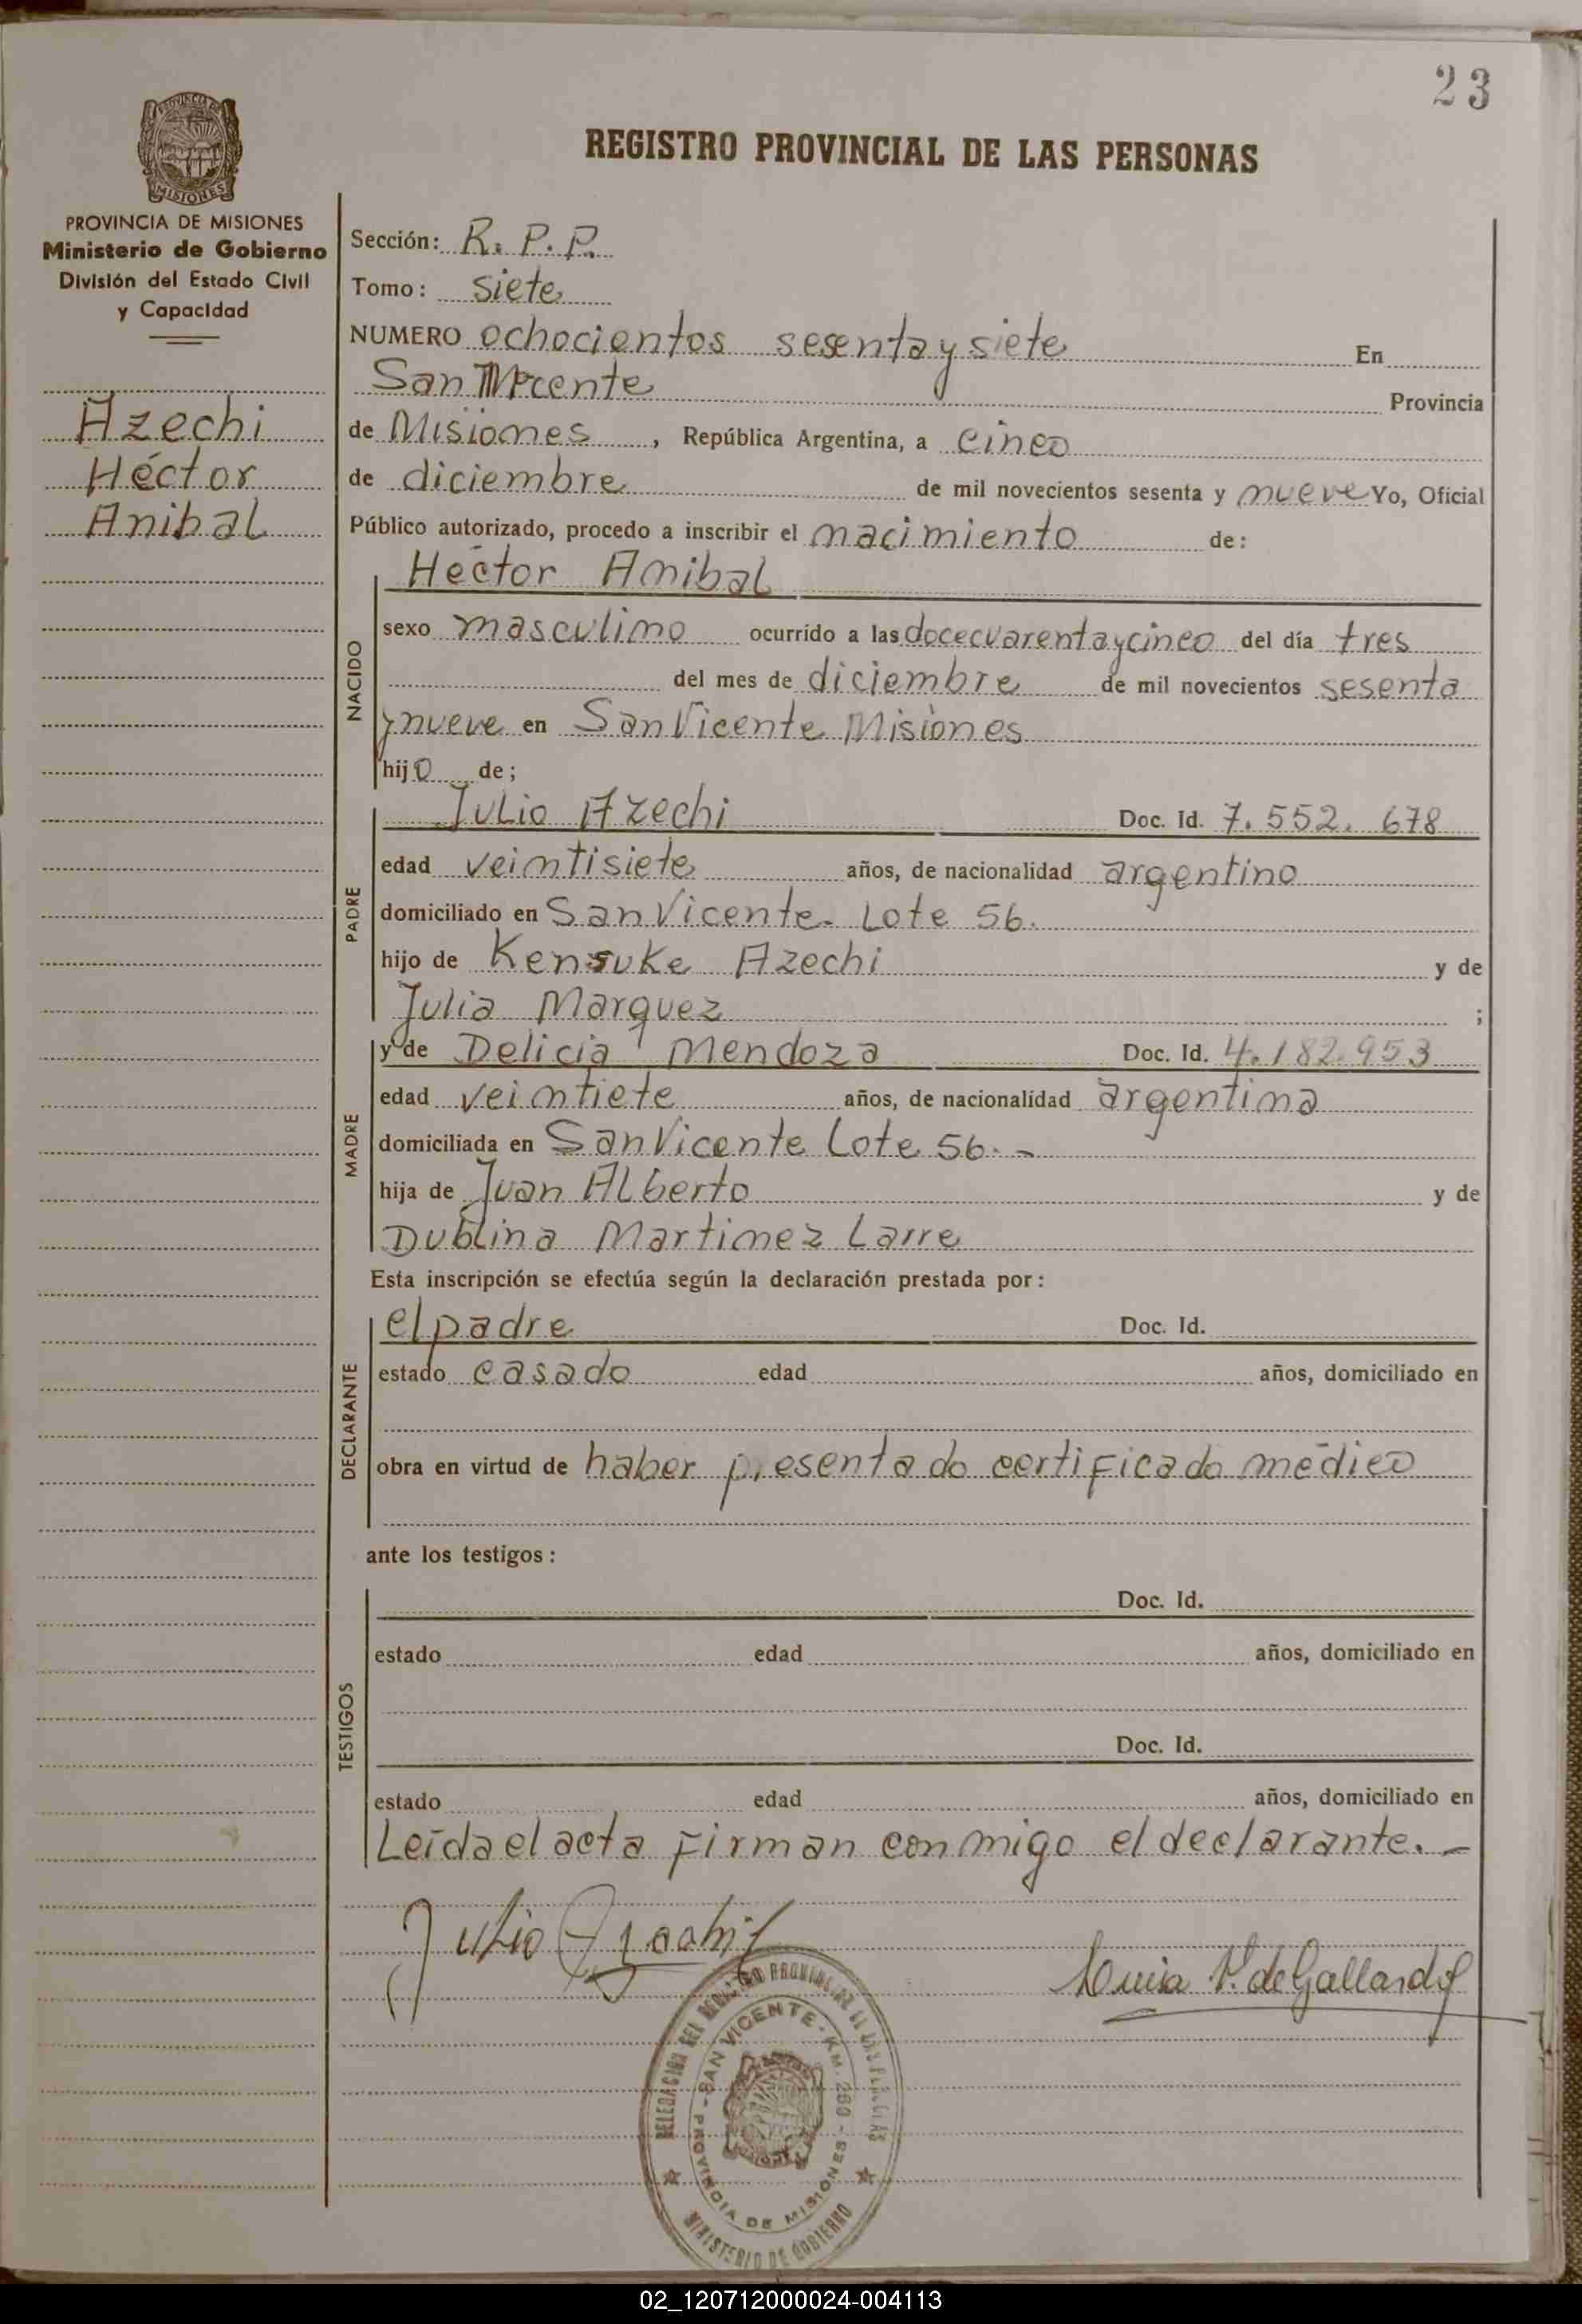 23
REGISTRO PROVINCIAL DE LAS PERSONAS
PROVINCIA DE
MISIONES
PROVINCIA DE MISIONES
Ministerio de Gobierno
División del Estado Civil
y Capacidad
Azechi
Héctor
Anibal
Sección: R. P. P.
Tomo: siete
NUMERO ochocientos sesenta y siete En
San Vicente Provincia
de Misiones, República Argentina, a cinco
de diciembre de mil novecientos sesenta y nueve Yo, Oficial
Público autorizado, procedo a inscribir el nacimiento de:
NACIDO
Héctor Anibal
sexo masculino ocurrido a las doce cuarenta y cinco del día tres
del mes de diciembre de mil novecientos sesenta
y nueve en San Vicente Misiones
hijo de;
PADRE
Julio Azechi Doc. Id. 7.552.678
edad veintisiete años, de nacionalidad argentino
domiciliado en San Vicente. Lote 56.
hijo de Kensuke Azechi y de
Julia Marquez ;
MADRE
y de Delicia Mendoza Doc. Id. 4.182.953
edad veintiete años, de nacionalidad argentina
domiciliada en San Vicente Lote 56. -
hija de Juan Alberto y de
Dublina Martinez Larre
Esta inscripción se efectúa según la declaración prestada por:
DECLARANTE
el padre Doc. Id.
estado casado edad años, domiciliado en
obra en virtud de haber presentado certificado médico
ante los testigos:
TESTIGOS
Doc. Id.
estado edad años, domiciliado en
Doc. Id.
estado edad años, domiciliado en
Leída el acta firman conmigo el declarante. -
Julio Azechi
de Gallardo
DELEGACION DEL REGISTRO PROVINCIAL DE LAS PERSONAS
SAN VICENTE - KM. 260 - PROVINCIA DE MISIONES
MINISTERIO DE GOBIERNO
02_120712000024-004113